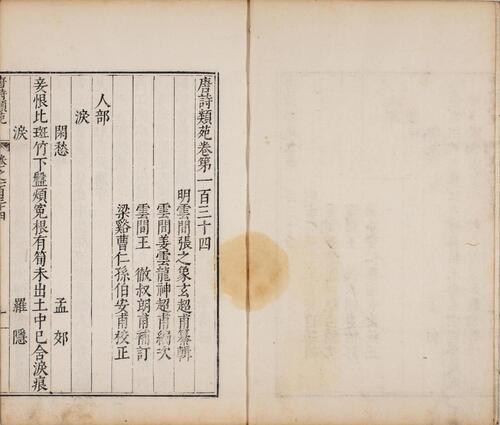 唐詩類苑卷第一百三十四
明雲間張之象玄超甫纂輯
雲間姜雲龍神超甫編次
雲間王徹叔朗甫補訂
梁谿曹仁孫伯安甫校正
人部
淚
閑愁 孟郊
妾恨比斑竹下盤煩冤根有筍未出土中已含淚痕
淚 羅隱
唐詩類苑